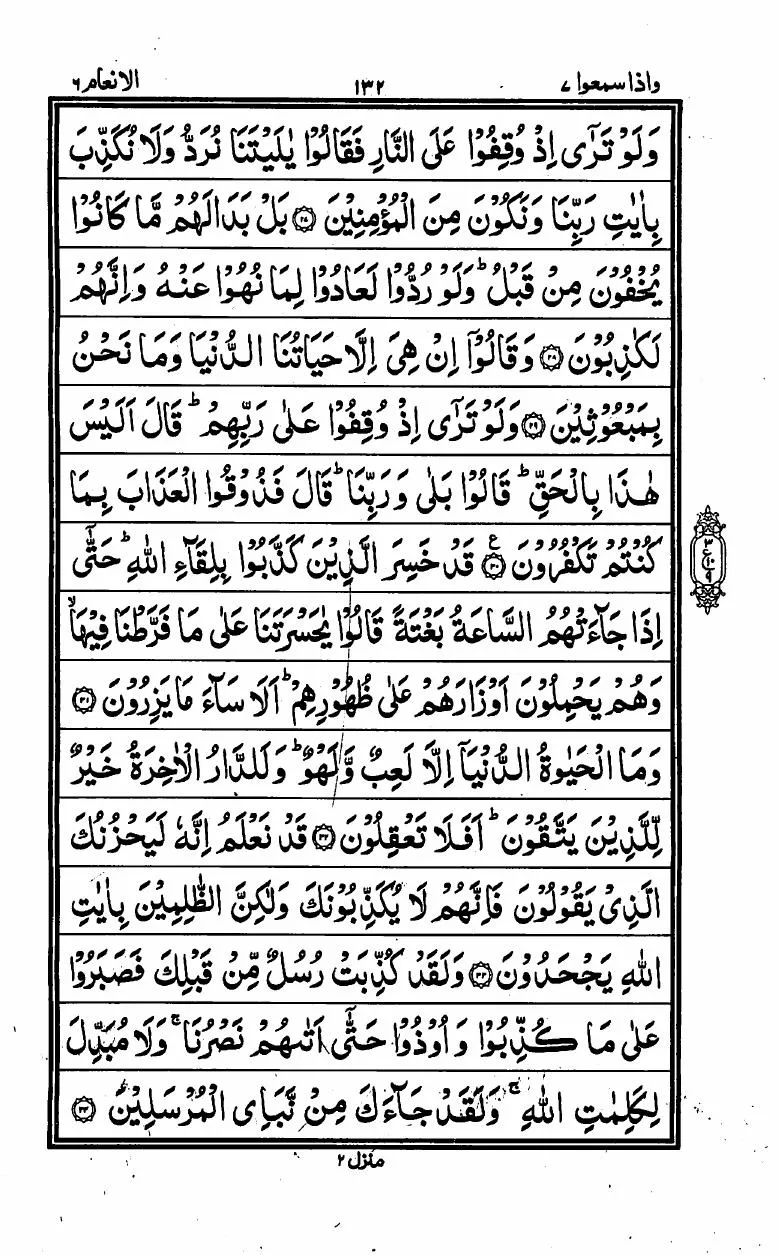 واذا سمعوا ۷
۱۳۲
الانعام ۶
وَلَوْ تَرٰٓى اِذْ وُقِفُوْا عَلَى النَّارِ فَقَالُوْا يٰلَيْتَنَا نُرَدُّ وَلَا نُكَذِّبَ
بِاٰيٰتِ رَبِّنَا وَنَكُوْنَ مِنَ الْمُؤْمِنِيْنَ ۝۲۷ بَلْ بَدَا لَهُمْ مَّا كَانُوْا
يُخْفُوْنَ مِنْ قَبْلُ ؕ وَلَوْ رُدُّوْا لَعَادُوْا لِمَا نُهُوْا عَنْهُ وَاِنَّهُمْ
لَكٰذِبُوْنَ ۝۲۸ وَقَالُوْٓا اِنْ هِىَ اِلَّا حَيَاتُنَا الدُّنْيَا وَمَا نَحْنُ
بِمَبْعُوْثِيْنَ ۝۲۹ وَلَوْ تَرٰٓى اِذْ وُقِفُوْا عَلٰى رَبِّهِمْ ؕ قَالَ اَلَيْسَ
هٰذَا بِالْحَقِّ ؕ قَالُوْا بَلٰى وَرَبِّنَا ؕ قَالَ فَذُوْقُوا الْعَذَابَ بِمَا
كُنْتُمْ تَكْفُرُوْنَ ۝۳۰ ع قَدْ خَسِرَ الَّذِيْنَ كَذَّبُوْا بِلِقَآءِ اللّٰهِ ؕ حَتّٰٓى
اِذَا جَآءَتْهُمُ السَّاعَةُ بَغْتَةً قَالُوْا يٰحَسْرَتَنَا عَلٰى مَا فَرَّطْنَا فِيْهَا ۙ
وَهُمْ يَحْمِلُوْنَ اَوْزَارَهُمْ عَلٰى ظُهُوْرِهِمْ ؕ اَلَا سَآءَ مَا يَزِرُوْنَ ۝۳۱
وَمَا الْحَيٰوةُ الدُّنْيَآ اِلَّا لَعِبٌ وَّلَهْوٌ ؕ وَلَلدَّارُ الْاٰخِرَةُ خَيْرٌ
لِّلَّذِيْنَ يَتَّقُوْنَ ؕ اَفَلَا تَعْقِلُوْنَ ۝۳۲ قَدْ نَعْلَمُ اِنَّهٗ لَيَحْزُنُكَ
الَّذِىْ يَقُوْلُوْنَ فَاِنَّهُمْ لَا يُكَذِّبُوْنَكَ وَلٰكِنَّ الظّٰلِمِيْنَ بِاٰيٰتِ
اللّٰهِ يَجْحَدُوْنَ ۝۳۳ وَلَقَدْ كُذِّبَتْ رُسُلٌ مِّنْ قَبْلِكَ فَصَبَرُوْا
عَلٰى مَا كُذِّبُوْا وَاُوْذُوْا حَتّٰٓى اَتٰىهُمْ نَصْرُنَا ۚ وَلَا مُبَدِّلَ
لِكَلِمٰتِ اللّٰهِ ۚ وَلَقَدْ جَآءَكَ مِنْ نَّبَاِى الْمُرْسَلِيْنَ ۝۳۴
منزل ۲